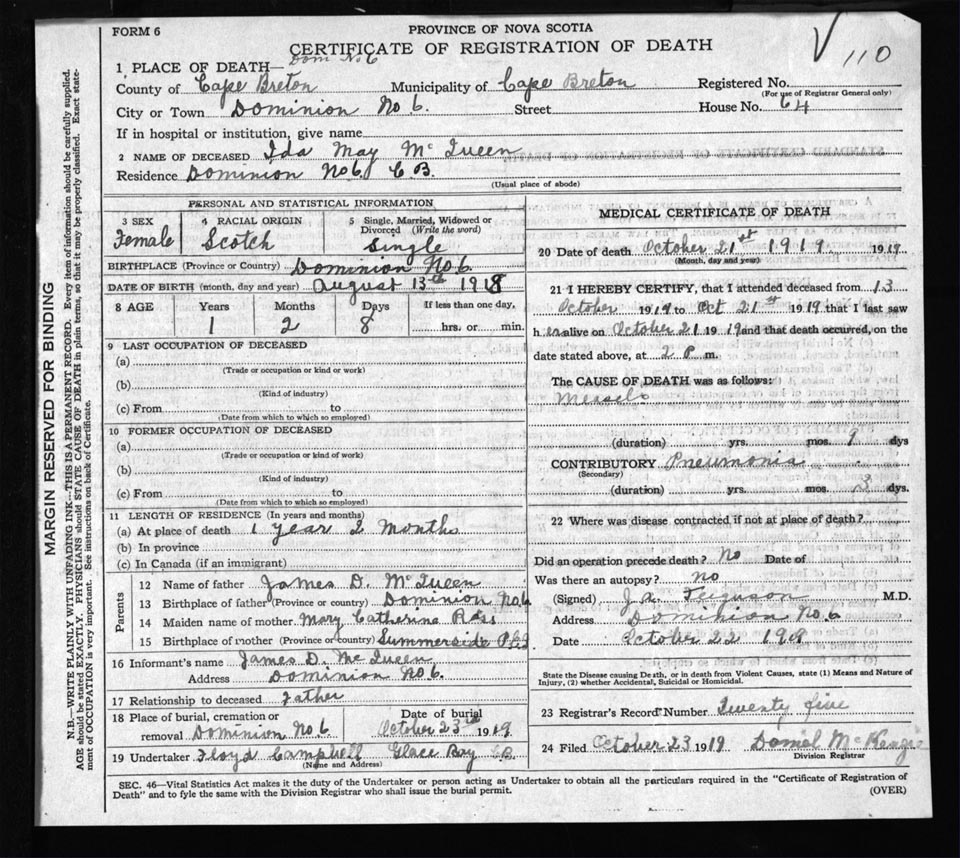 FORM 6
PROVINCE OF NOVA SCOTIA
CERTIFICATE OF REGISTRATION OF DEATH
110
1 PLACE OF DEATH— Dom. No 6
County of Cape Breton Municipality of Cape Breton Registered No.
(For use of Registrar General only)
City or Town Dominion No 6. Street House No. 64
If in hospital or institution, give name
2 NAME OF DECEASED Ida May McQueen
Residence Dominion No 6. C B.
(Usual place of abode)
PERSONAL AND STATISTICAL INFORMATION
3 SEX 4 RACIAL ORIGIN 5 Single, Married, Widowed or Divorced (Write the word)
Female Scotch Single
BIRTHPLACE (Province or Country) Dominion No 6.
DATE OF BIRTH (month, day and year) August 13th 1918
8 AGE Years Months Days If less than one day,
1 2 8 hrs. or min.
9 LAST OCCUPATION OF DECEASED
(a)
(Trade or occupation or kind or work)
(b)
(Kind of industry)
(c) From to
(Date from which to which so employed)
10 FORMER OCCUPATION OF DECEASED
(a)
(Trade or occupation or kind of work)
(b)
(Kind of industry)
(c) From to
(Date from which to which so employed)
11 LENGTH OF RESIDENCE (In years and months)
(a) At place of death 1 year 2 months
(b) In province
(c) In Canada (if an immigrant)
Parents
12 Name of father James D. McQueen
13 Birthplace of father (Province or country) Dominion No 6
14 Maiden name of mother Mary Catherine Ross
15 Birthplace of mother (Province or country) Summerside P E I
16 Informant's name James D. McQueen
Address Dominion No 6.
17 Relationship to deceased Father
18 Place of burial, cremation or removal Dominion No 6 Date of burial October 23rd 1919
19 Undertaker Floyd Campbell Glace Bay C.B.
(Name and Address)
MEDICAL CERTIFICATE OF DEATH
20 Date of death October 21st 1919. 1919
(Month, day and year)
21 I HEREBY CERTIFY, that I attended deceased from 13
October 1919 to Oct 21st 1919 that I last saw
h er alive on October 21 1919 and that death occurred, on the
date stated above, at 2 P. m.
The CAUSE OF DEATH was as follows:
Measels
(duration) yrs. mos. 9 dys
CONTRIBUTORY Pneumonia
(Secondary)
(duration) yrs. mos. 3 dys.
22 Where was disease contracted if not at place of death?
Did an operation precede death? No Date of
Was there an autopsy? no
(Signed) Ferguson M.D.
Address Dominion No 6
Date October 22 191
State the Disease causing Death, or in death from Violent Causes, state (1) Means and Nature of
Injury, (2) whether Accidental, Suicidal or Homicidal.
23 Registrar's Record Number Twenty five
24 Filed October 23 1919 Daniel McKenzie
Division Registrar
SEC. 46—Vital Statistics Act makes it the duty of the Undertaker or person acting as Undertaker to obtain all the particulars required in the "Certificate of Registration of
Death" and to fyle the same with the Division Registrar who shall issue the burial permit.
(OVER)
MARGIN RESERVED FOR BINDING
N.B.—WRITE PLAINLY WITH UNFADING INK—THIS IS A PERMANENT RECORD. Every item of information should be carefully supplied.
AGE should be stated EXACTLY. PHYSICIANS should STATE CAUSE OF DEATH in plain terms, so that it may be properly classified. Exact statement of OCCUPATION is very important. See instructions on back of Certificate.